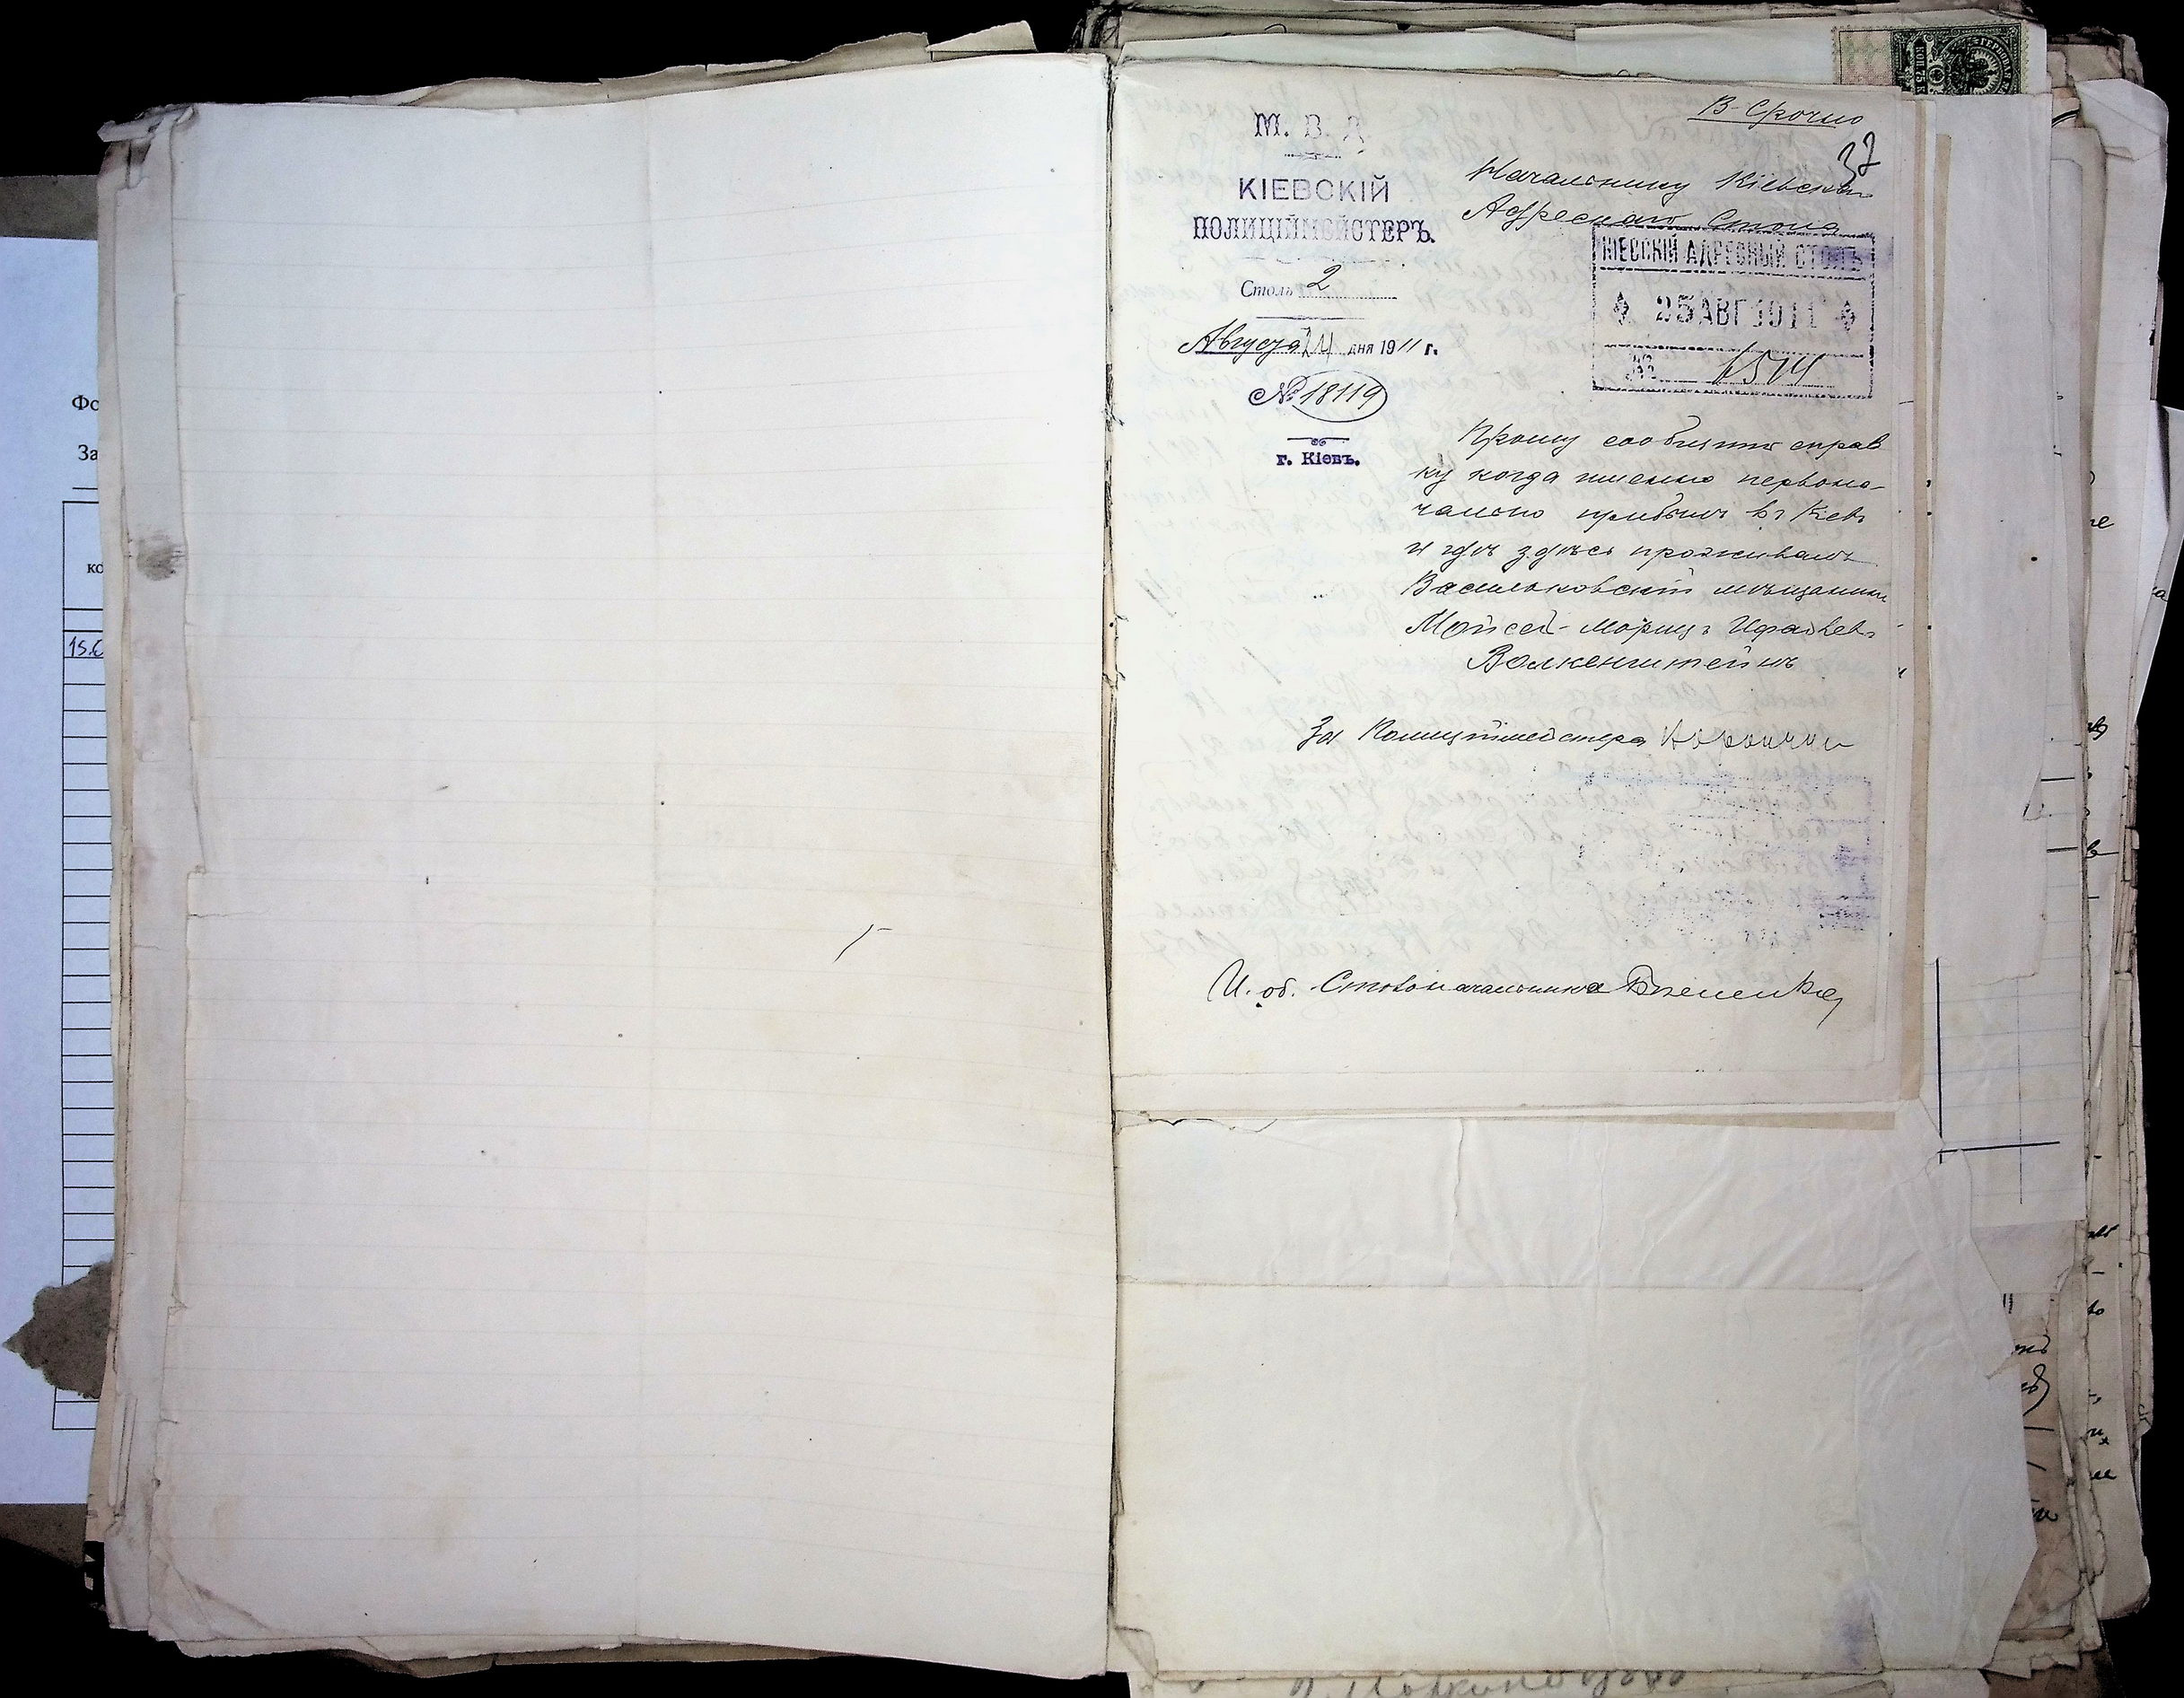 В. Срочно
37
М. В. Д.
КІЕВСКІЙ
ПОЛИЦІЙМЕЙСТЕРЪ.
Столъ 2
Августа 24 дня 1911 г.
№ 18119
г. Кіевъ.
Начальнику Кіевскаго
Адреснаго Стола
КІЕВСКІЙ АДРЕСНЫЙ СТОЛЪ
25 АВГ 1911
№ 6514
Прошу сообщить справ
ку когда именно первона-
чально прибылъ въ Кіевъ
и гдѣ здѣсь проживалъ
Васильковскій мѣщанинъ
Мойсей-Морицъ Израилевъ
Волкенштейнъ
За Полиціймейстера
И. об. Столоначальника
Фо
За
ко
15.0